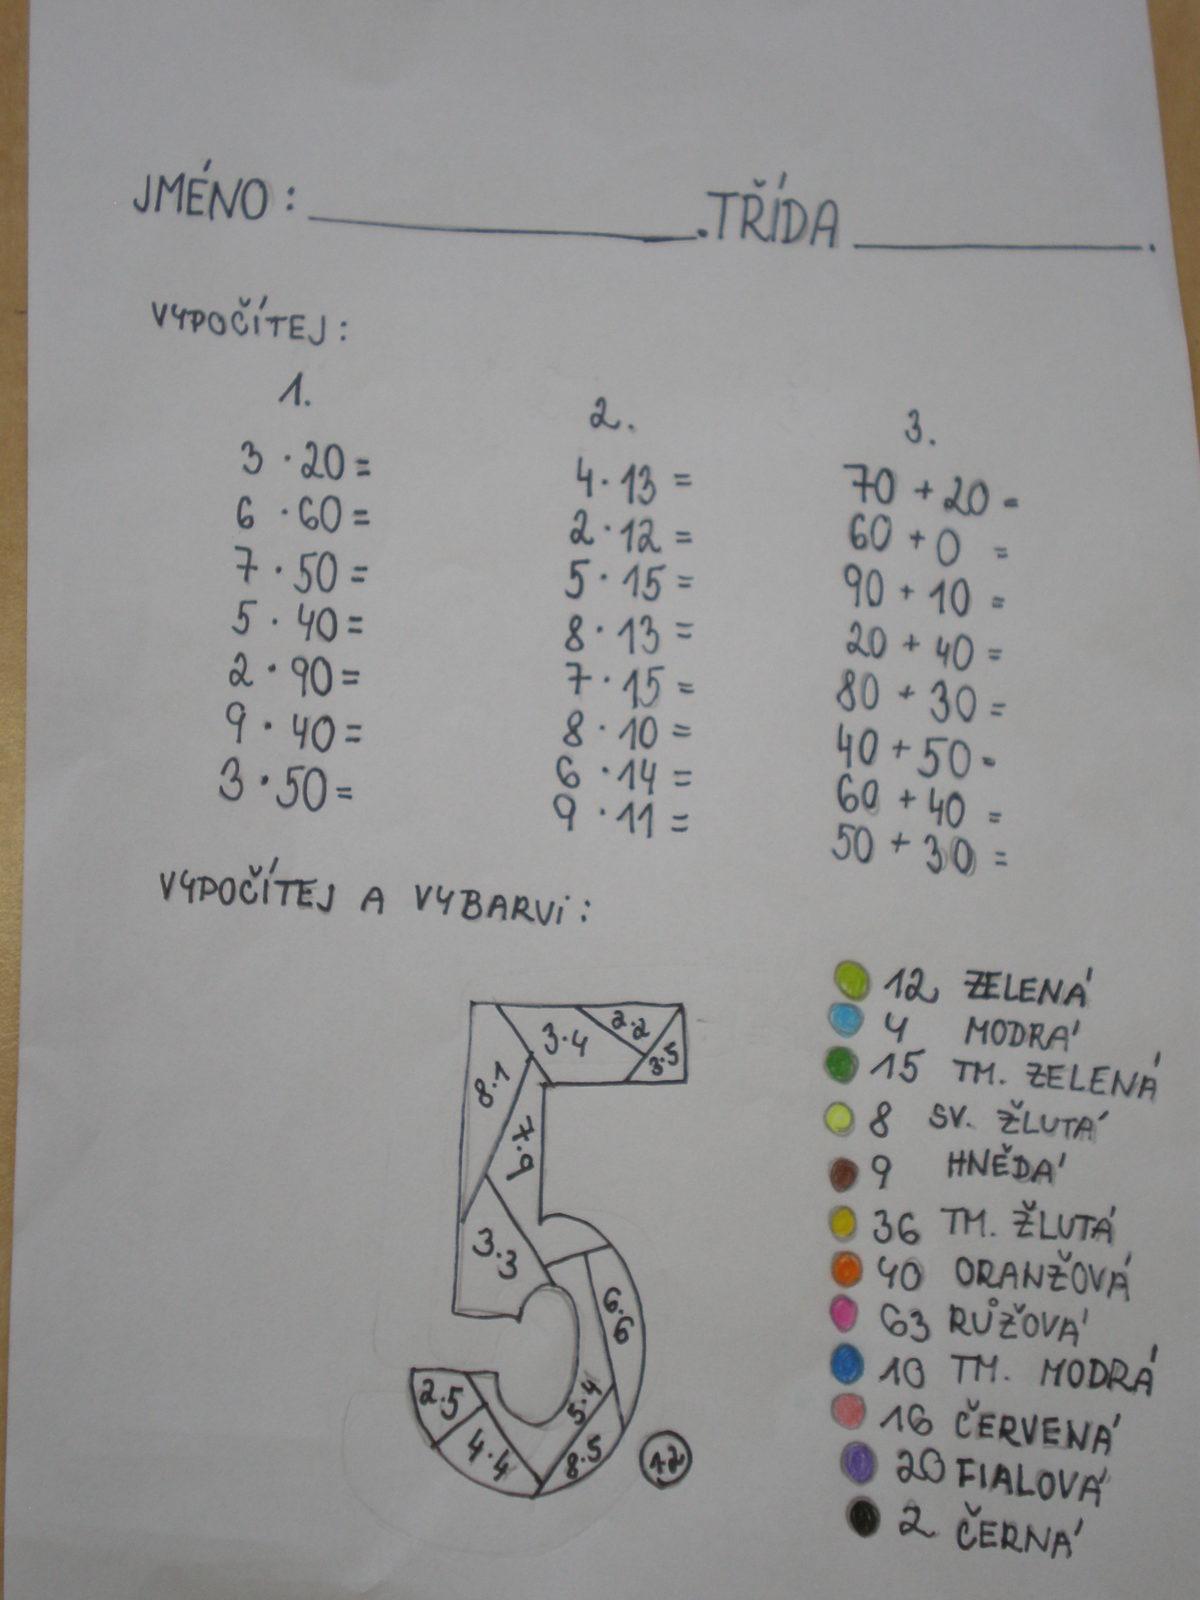 JMÉNO: ____________. TŘÍDA ________.
VYPOČÍTEJ:
1.
3 · 20 =
6 · 60 =
7 · 50 =
5 · 40 =
2 · 90 =
9 · 40 =
3 · 50 =
2.
4 · 13 =
2 · 12 =
5 · 15 =
8 · 13 =
7 · 15 =
8 · 10 =
6 · 14 =
9 · 11 =
3.
70 + 20 =
60 + 0 =
90 + 10 =
20 + 40 =
80 + 30 =
40 + 50 =
60 + 40 =
50 + 30 =
VYPOČÍTEJ A VYBARVi:
3·4
2·2
3·5
8·1
7·9
3·3
6·6
5·4
2·5
4·4
8·5
1·2
12 ZELENÁ
4 MODRÁ
15 TM. ZELENÁ
8 SV. ŽLUTÁ
9 HNĚDÁ
36 TM. ŽLUTÁ
40 ORANŽOVÁ
63 RŮŽOVÁ
10 TM. MODRÁ
16 ČERVENÁ
20 FIALOVÁ
2 ČERNÁ